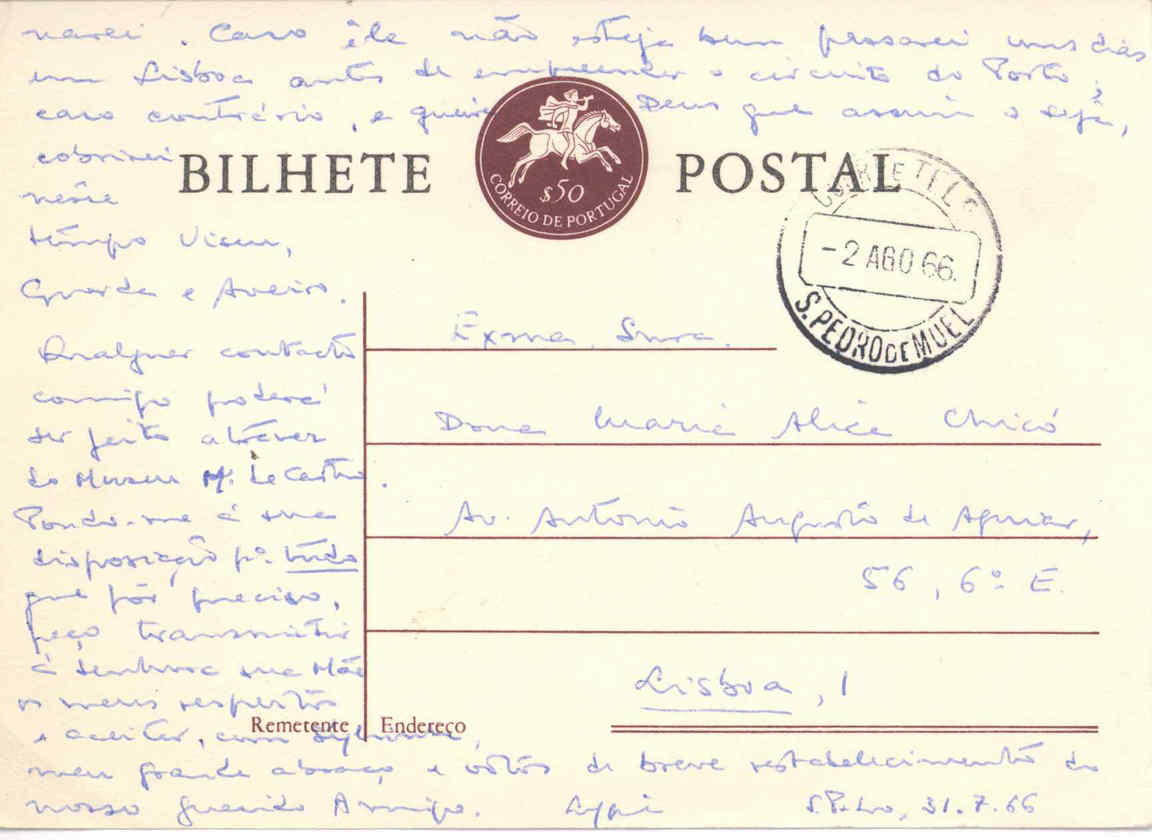 narei. Caso êle não esteja bem passarei uns dias
em Lisboa antes de empreender o circuito do Porto,
caso contrário, e queira Deus que assim o seja,
cobrirei
nêste
tempo Viseu,
Guarda e Aveiro.
Qualquer contacto
comigo poderá
ser feito através
do Museu M. de Castro.
Pondo-me à sua
disposição pª. tudo
que fôr preciso,
peço transmitir
à Senhora sua Mãe
os meus respeitos
e aceitar, com
meu grande abraço e votos de breve restabelecimento do
nosso querido Amigo.
S. Pedro, 31.7.66
BILHETE POSTAL
$50
CORREIO DE PORTUGAL
- 2 AGO 66.
S. PEDRO DE MUEL
Exma. Snra.
Dona Maria Alice Chicó
Av. António Augusto de Aguiar,
56, 6º E.
Lisboa, 1
Remetente
Endereço